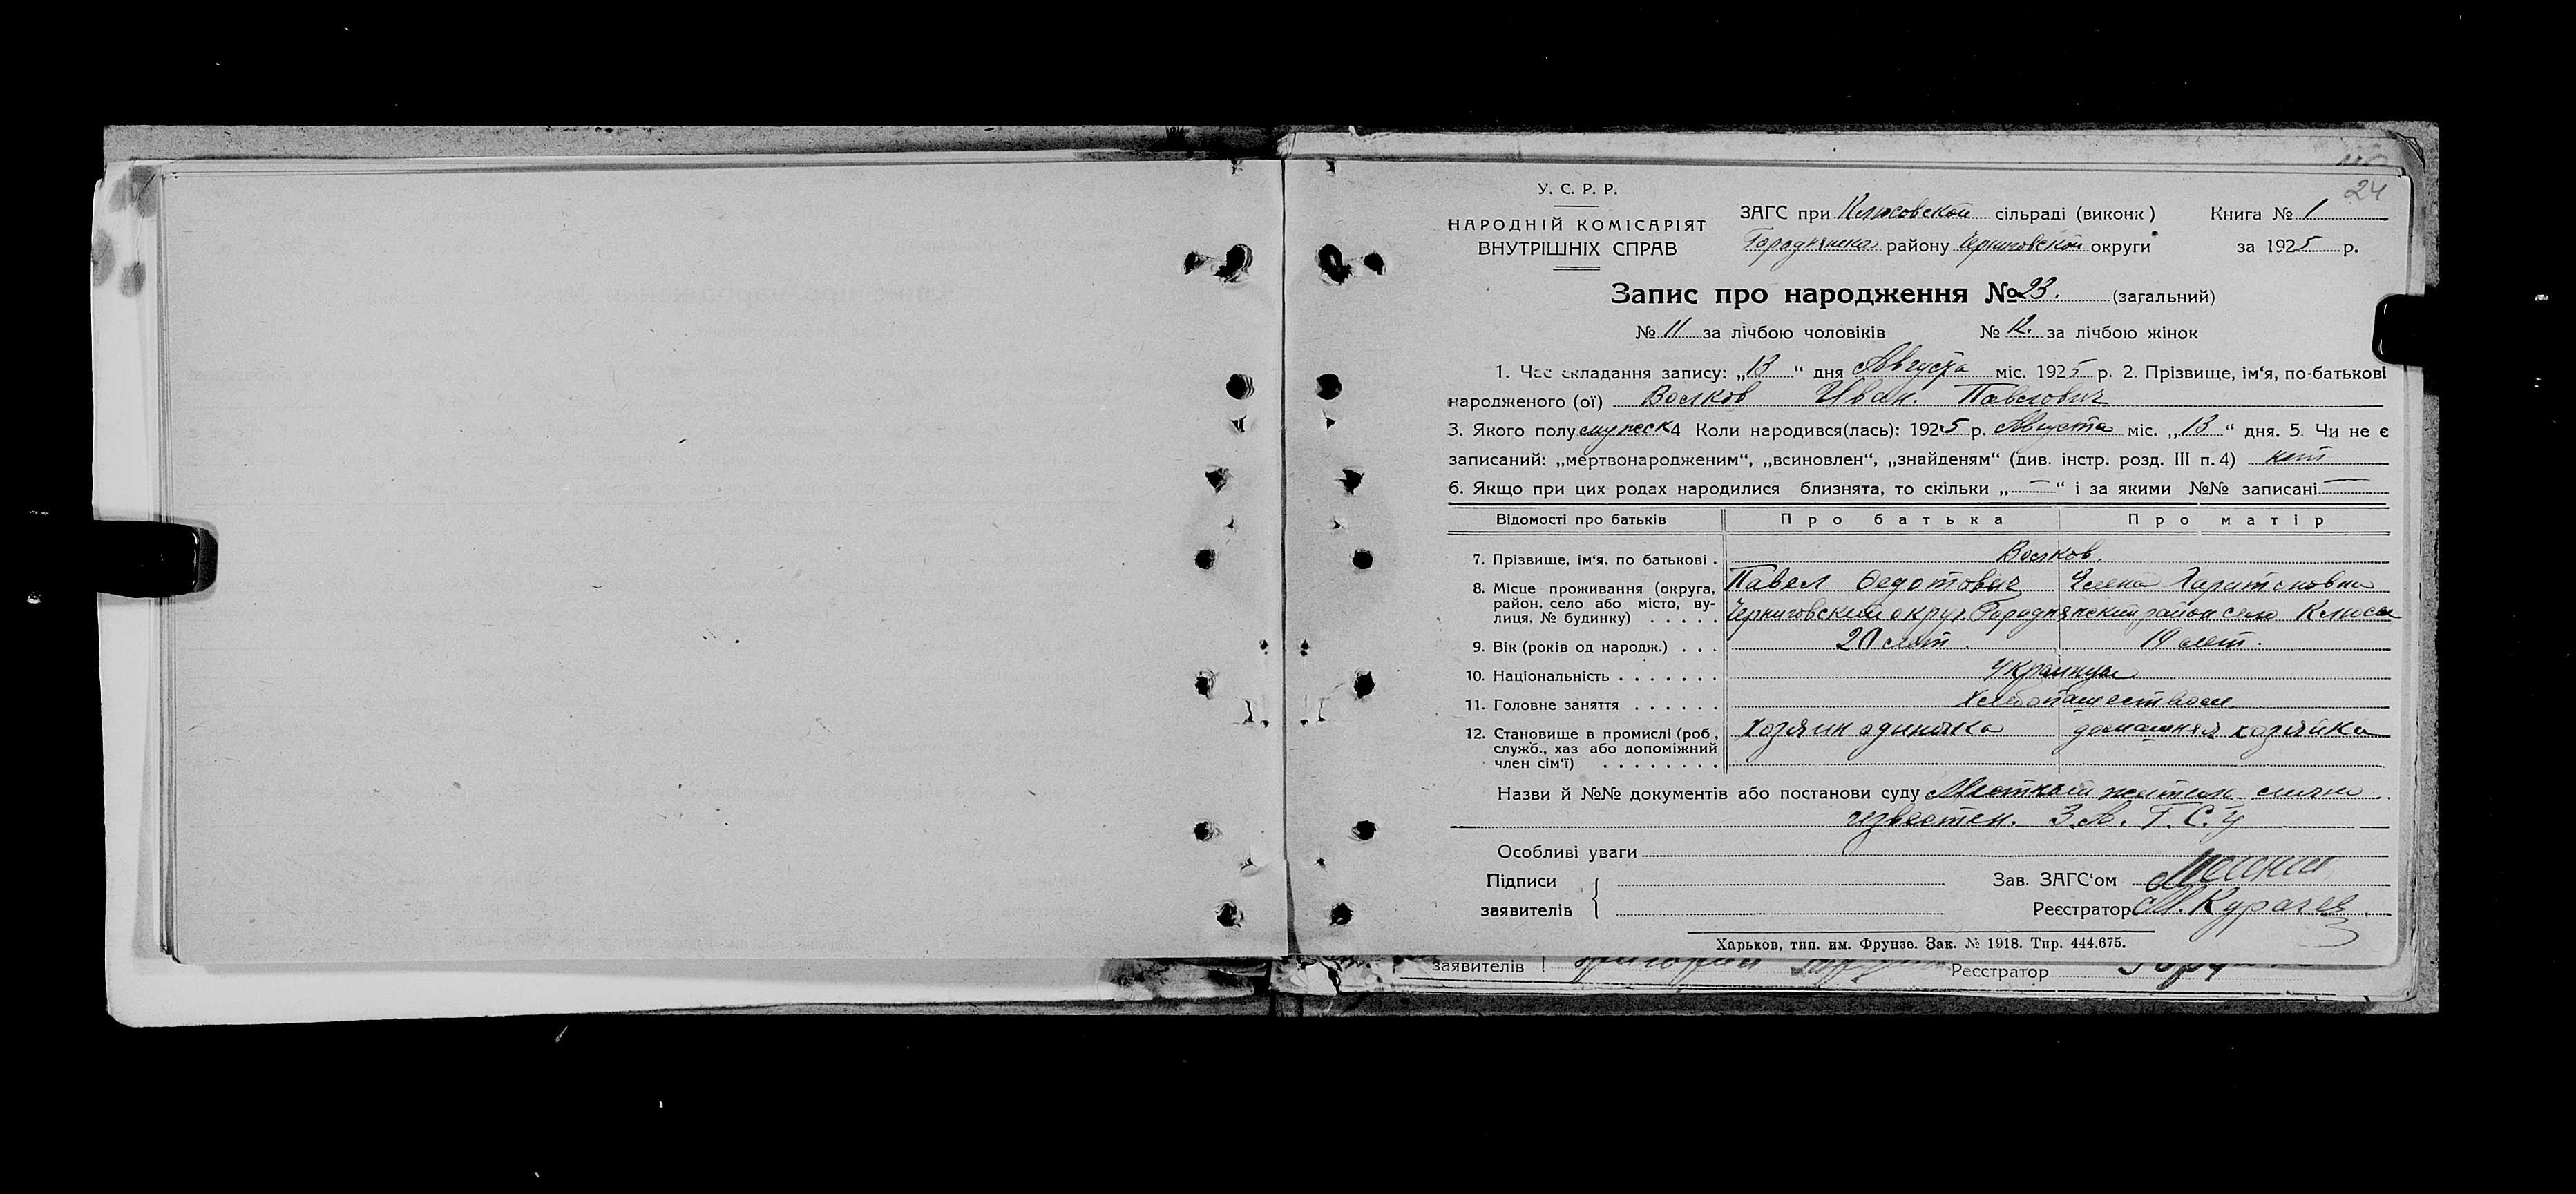 24
У. С. Р. Р.
НАРОДНІЙ КОМІСАРІЯТ
ВНУТРІШНІХ СПРАВ
ЗАГС при Клюсовской сільраді (виконк) Книга № 1
Городнянского району Черниговской округи за 1925 р.
Запис про народження № 23. (загальний)
№ 11 за лічбою чоловіків № 12. за лічбою жінок
1. Час складання запису: „13“ дня Августа міс. 1925 р. 2. Прізвище, ім‘я, по-батькові
народженого (ої) Волков Иван. Павлович
3. Якого полу мужеск 4 Коли народився(лась): 1925 р. Августа міс. „13“ дня. 5. Чи не є
записаний: „мертвонародженим“, „всиновлен“, „знайденям“ (див. інстр. розд. III п. 4) нет
6. Якщо при цих родах народилися близнята, то скільки „—“ і за якими №№ записані —
Відомості про батьків Про батька Про матір
7. Прізвище, ім‘я, по батькові . Волков.
Павел Федотович Елена Харитоновна
8. Місце проживання (округа,
район, село або місто, ву-
лиця, № будинку) . . . . . Черниговский округ Городнянский район село Клюсы
9. Вік (років од народж.) . . . 20 лет. 19 лет.
10. Національність . . . . . . . Украинцы
11. Головне заняття . . . . . . Хлебопашеством
12. Становище в промислі (роб., Хозяин одиночка домашняя хозяйка
служб., хаз або допоміжний
член сім‘ї) . . . . . . . .
Назви й №№ документів або постанови суду Местный житель лично
известен. З.А.Г.С.у
Особливі уваги
Підписи Зав. ЗАГС‘ом
заявителів Реєстратор М. Курагев
Харьков, тип. им. Фрунзе. Зак. № 1918. Тир. 444.675.
заявителів Реєстратор